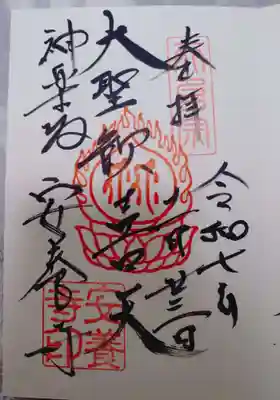 奉拝
令和七年
二月廿三日
大聖歓喜天
神楽坂
安養寺
安養寺印